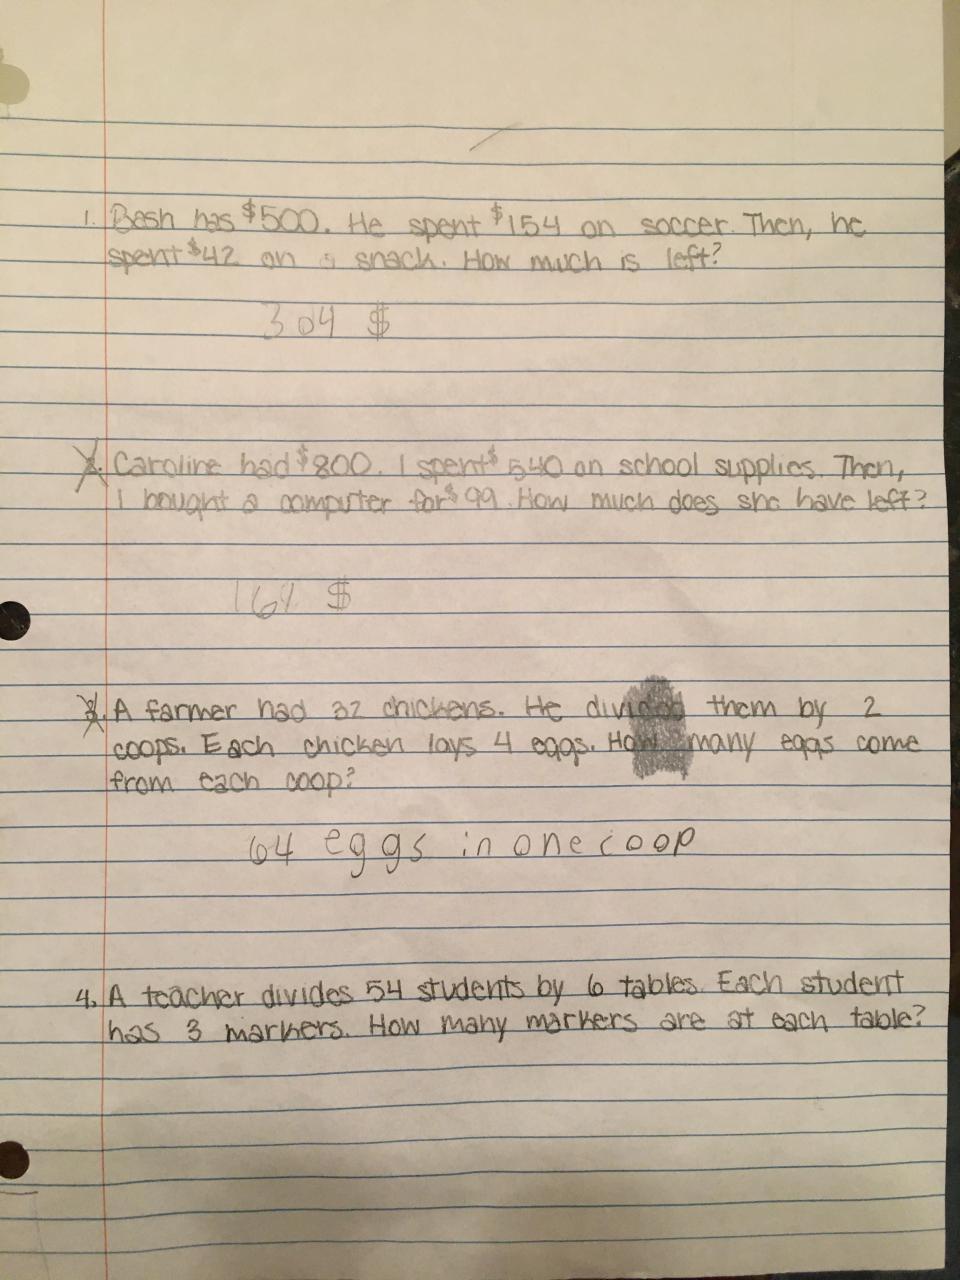 1. Bash has $500. He spent $154 on soccer. Then, he
spent $42 on a snack. How much is left?
304 $
2. Caroline had $800. I spent $540 on school supplies. Then,
I bought a computer for $99. How much does she have left?
161 $
3. A farmer had 32 chickens. He divided them by 2
coops. Each chicken lays 4 eggs. How many eggs come
from each coop?
64 eggs in one coop
4. A teacher divides 54 students by 6 tables. Each student
has 3 markers. How many markers are at each table?